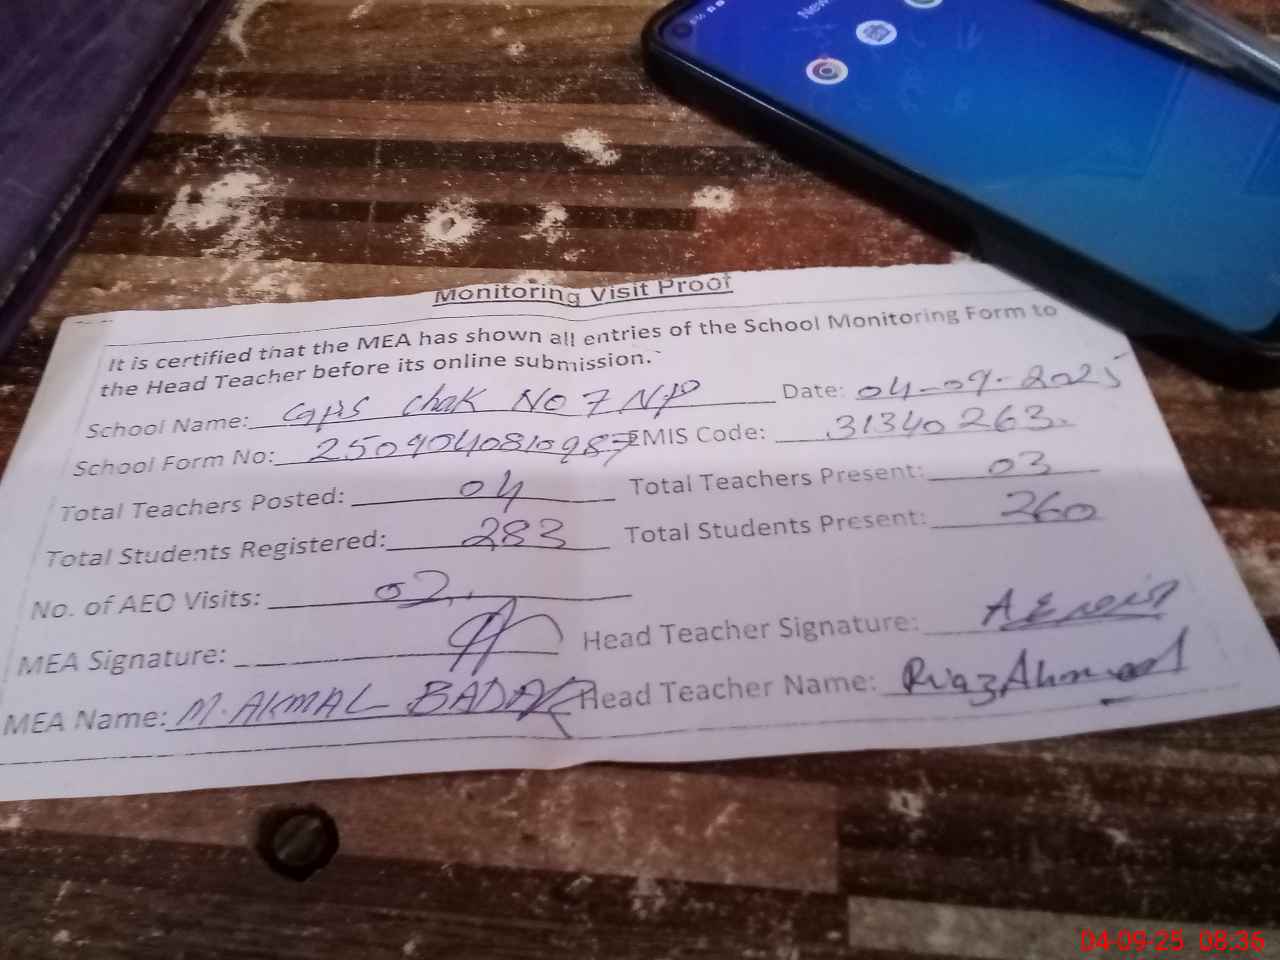 Monitoring Visit Proof
It is certified that the MEA has shown all entries of the School Monitoring Form to
the Head Teacher before its online submission.
School Name: GPS Chak No 7 NP Date: 04-09-2025
School Form No: 2509040810987 EMIS Code: 31340263
Total Teachers Posted: 04 Total Teachers Present: 03
Total Students Registered: 283 Total Students Present: 260
No. of AEO Visits: 02
MEA Signature: Head Teacher Signature:
MEA Name: M. AKMAL BADAR Head Teacher Name: Riaz Ahmad
04-09-25 08:36